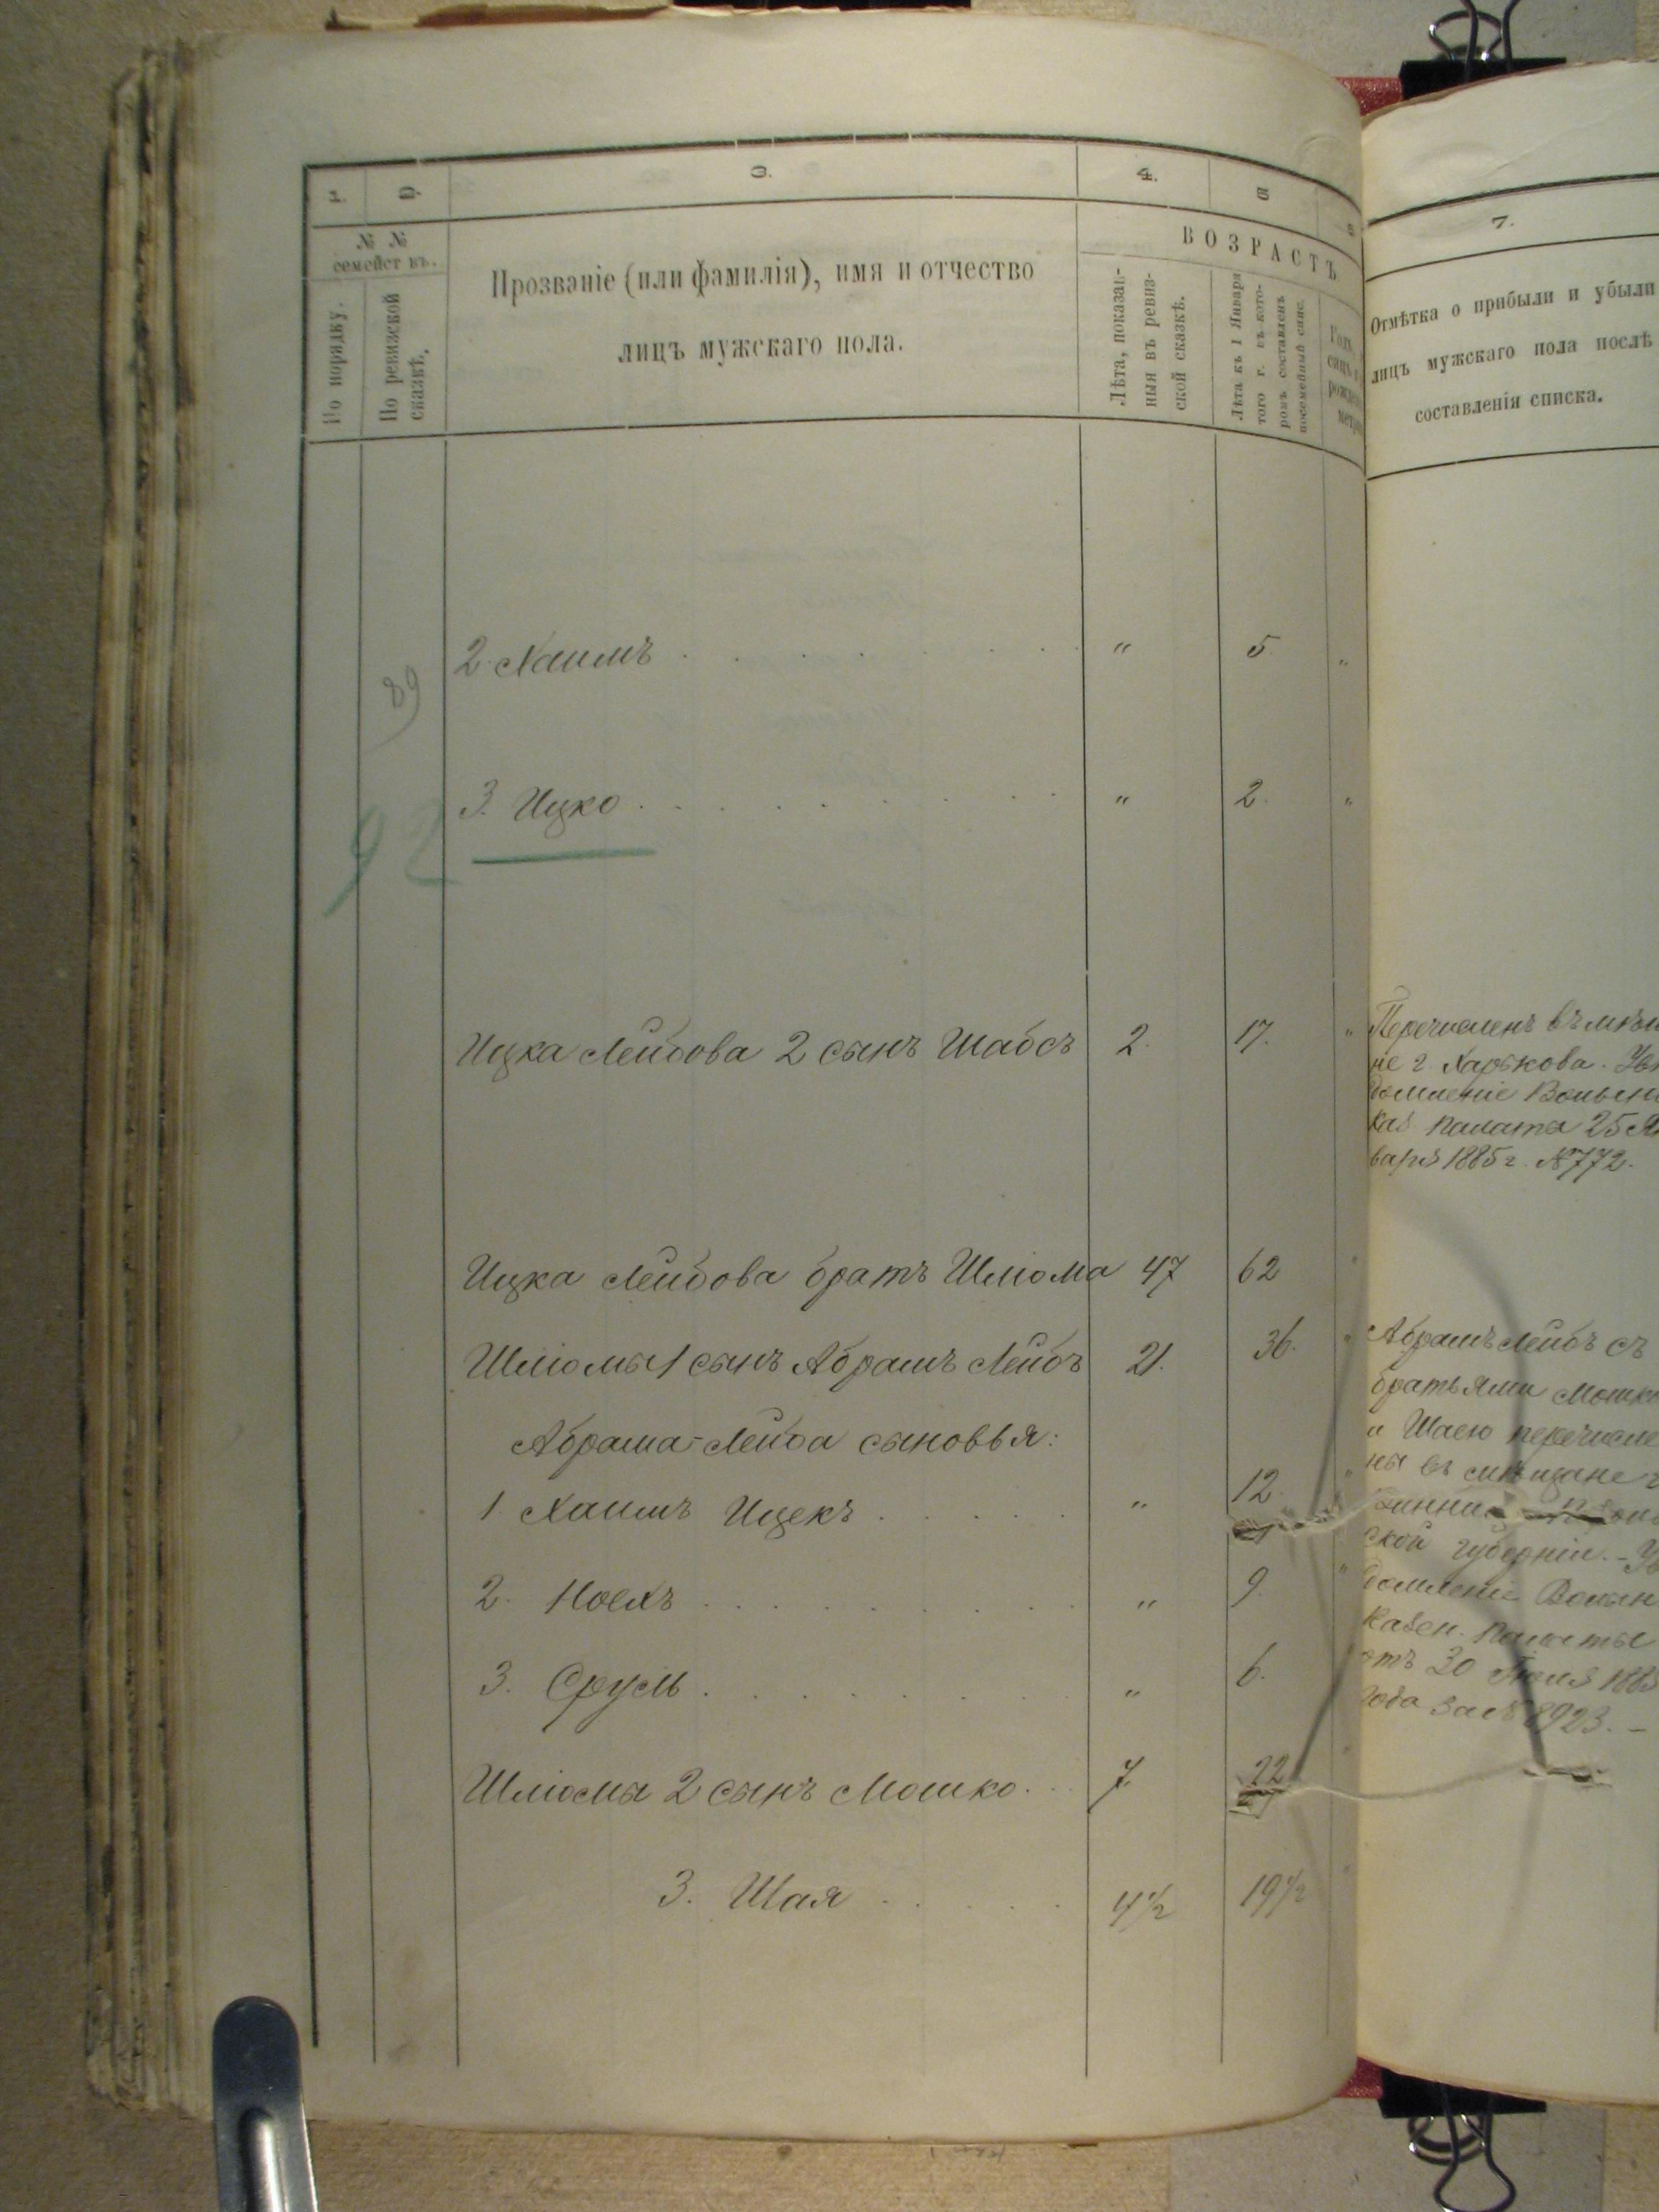 1.
2.
3.
4.
5
6
7.
№ №
семействъ.
По порядку.
По ревизской
сказкѣ.
Прозваніе (или фамилія), имя и отчество
лицъ мужскаго пола.
ВОЗРАСТЪ
Лѣта, показан-
ныя въ ревиз-
ской сказкѣ.
Лѣта къ 1 Января
того г. въ кото-
ромъ составленъ
посемейный спис.
Отмѣтка о прибыли и убыли
лицъ мужскаго пола послѣ
составленія списка.
2. Хаимъ . . . . . . . . " 5. "
89
3. Ицко . . . . . . . . " 2. "
92
Ицка Лейбова 2 сынъ Шабсъ 2. 17. "
Перечисленъ въ мѣщ
не г. Харькова. Увѣ
домленіе Волын
Каз. палаты 25 Ян
варя 1885 г. №772.
Ицка Лейбова братъ Шлиома 47 62
Шлиомы 1 сынъ Абрашъ Лейбъ 21. 36. "
Абраша-Лейба сыновья:
1. Хаимъ Ицекъ . . . . . " 12. "
2. Ноехъ . . . . . . . . " 9. "
3. Сруль . . . . . . . . " 6.
Шлиомы 2 сынъ Мошко . . . 7. 22
3. Шая . . . . . 4½ 19½
Абрашъ Лейбъ съ
братьями Мошко
и Шаею перечисле
ны въ мѣщане г
ской губерніи. – Ув
домленіе Волын
Казен. палаты
отъ 30 1885
года за № 8923. –